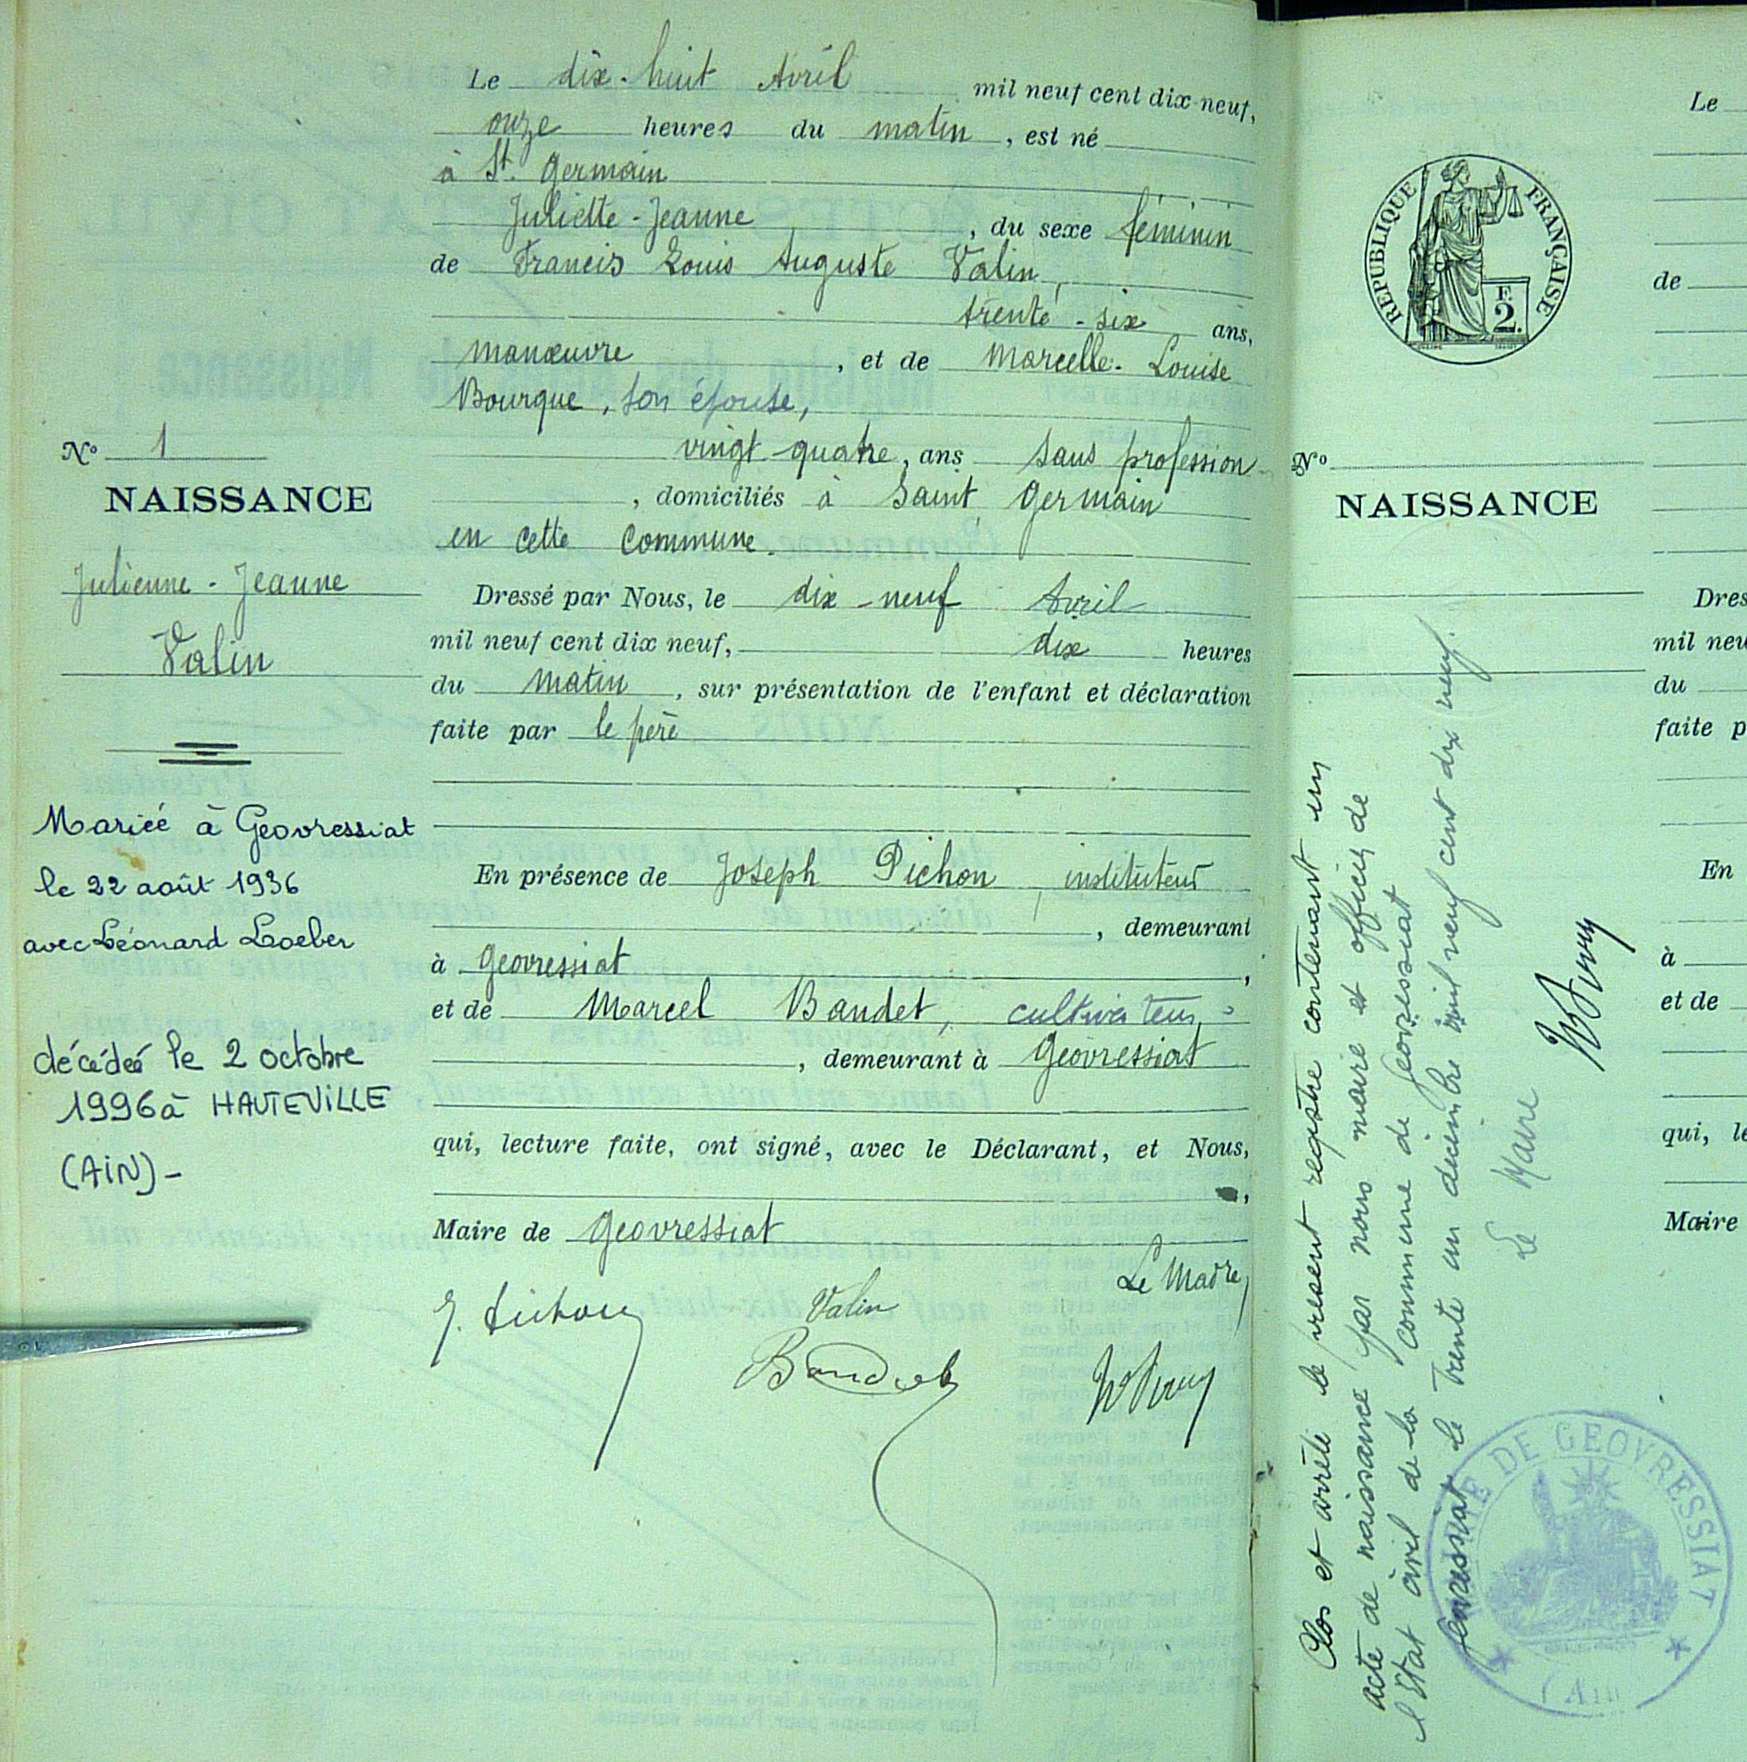 Le dix-huit Avril mil neuf cent dix-neuf,
onze heures du matin, est né
à St. Germain
Juliette-Jeanne, du sexe féminin
de Francis Louis Auguste Valin,
trente-six ans,
manœuvre, et de Marcelle-Louise
Bourque, son épouse,
vingt-quatre, ans sans profession
, domiciliés à Saint Germain
en cette commune.
Dressé par Nous, le dix-neuf Avril
mil neuf cent dix neuf, dix heures
du matin, sur présentation de l'enfant et déclaration
faite par le père
En présence de Joseph Pichon, instituteur
, demeurant
à Geovressiat,
et de Marcel Baudet, cultivateur
, demeurant à Geovressiat
qui, lecture faite, ont signé, avec le Déclarant, et Nous,
Maire de Geovressiat
Le Maire
J. Pichon
Valin
Baudet
No 1
NAISSANCE
Julienne-Jeanne
Valin
Mariée à Geovressiat
le 22 août 1936
avec Léonard Loeber
décédée le 2 octobre
1996 à HAUTEVILLE
(AIN)-
REPUBLIQUE FRANÇAISE
F.
2.
No
NAISSANCE
Clos et arrêté le présent registre contenant un
acte de naissance par nous maire et officier de
l'Etat civil de la commune de Geovressiat
Geovressiat le trente un décembre mil neuf cent dix neuf.
Le Maire
MAIRIE DE GEOVRESSIAT
(AIN)
Le
de
Dres
mil neu
du
faite p
En
à
et de
qui, le
Maire